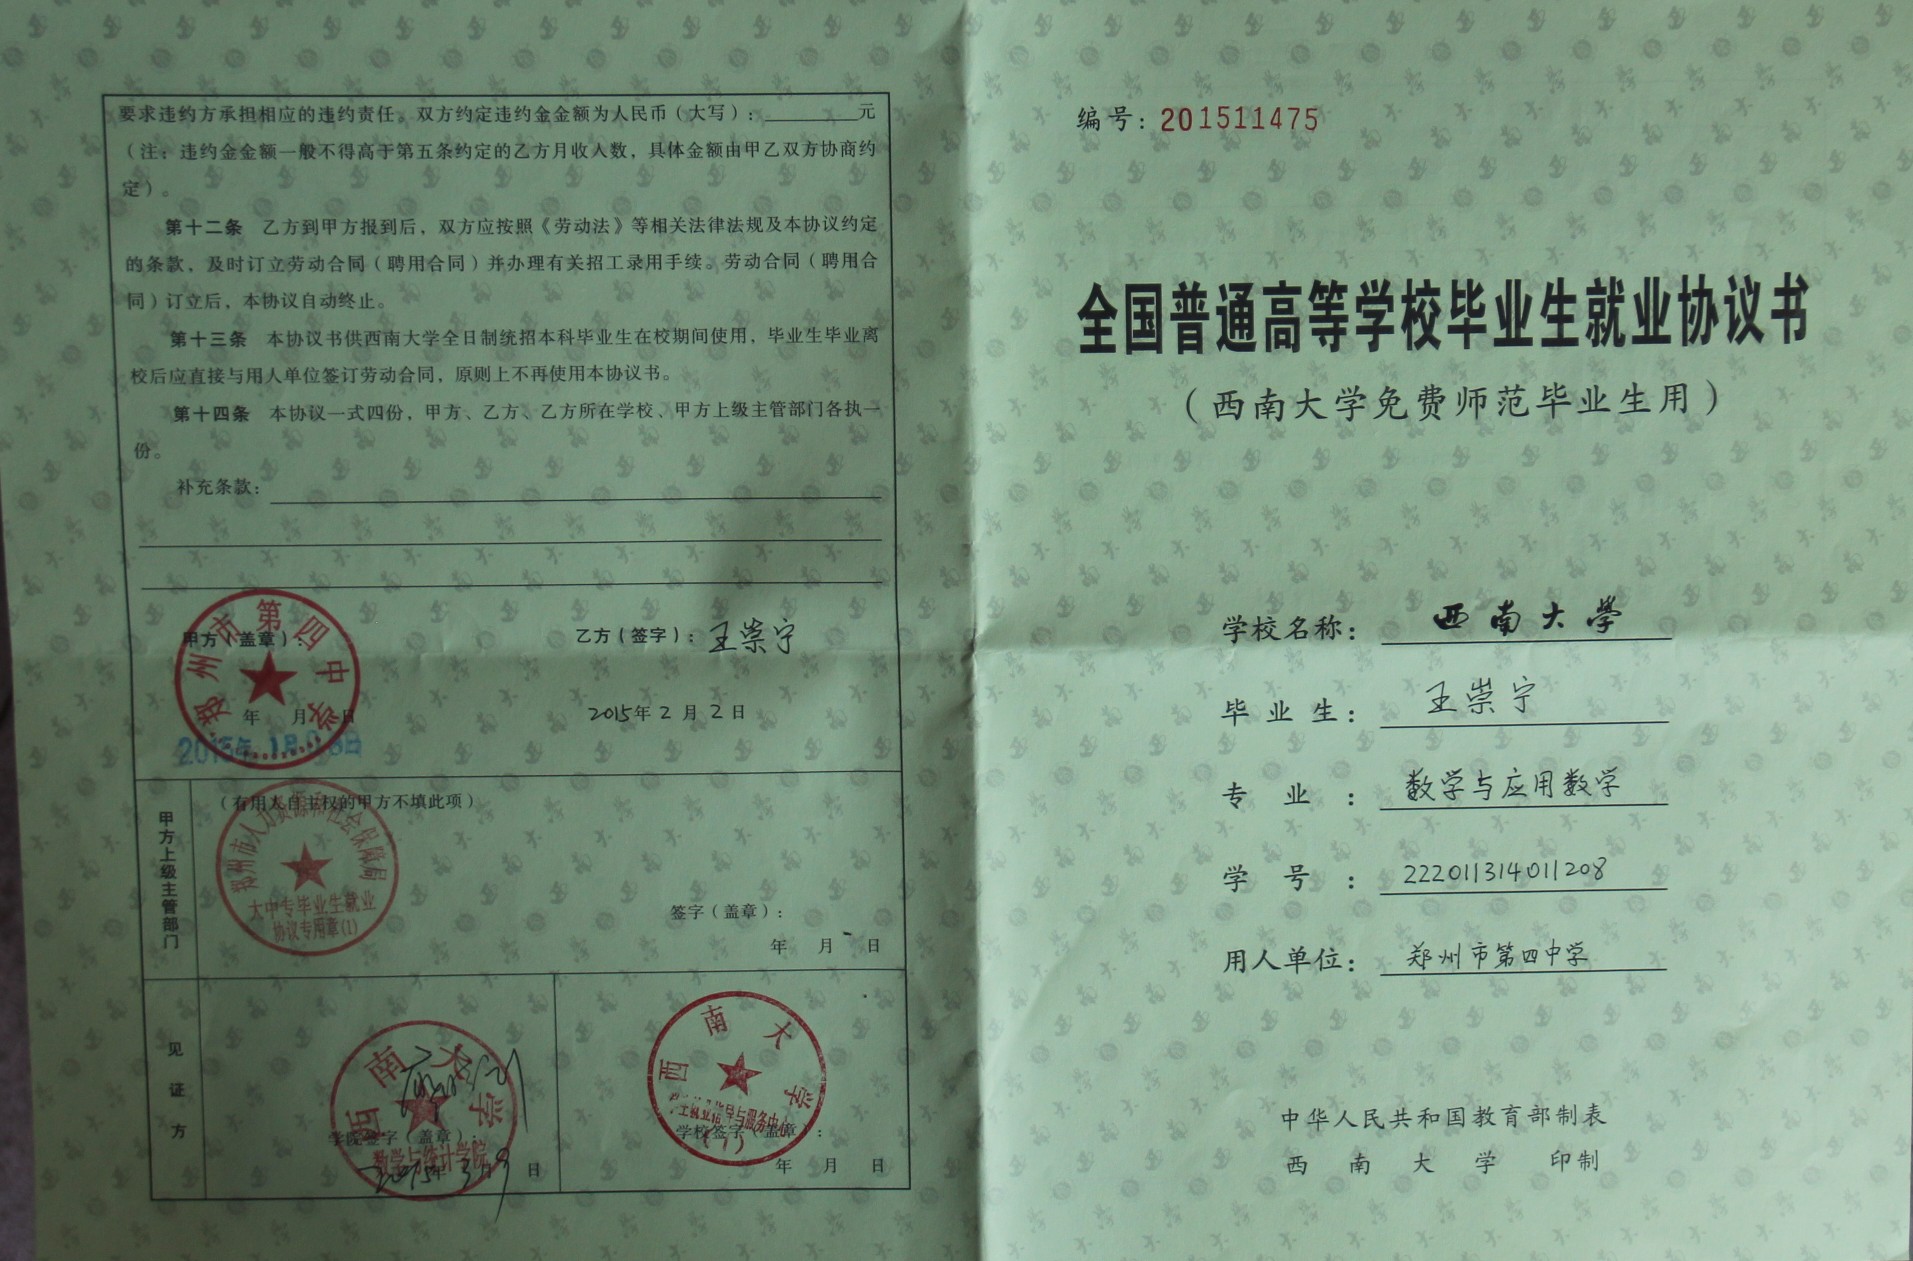 要求违约方承担相应的违约责任。双方约定违约金金额为人民币（大写）：________元
（注：违约金金额一般不得高于第五条约定的乙方月收入数，具体金额由甲乙双方协商约
定）。
第十二条 乙方到甲方报到后，双方应按照《劳动法》等相关法律法规及本协议约定
的条款，及时订立劳动合同（聘用合同）并办理有关招工录用手续。劳动合同（聘用合
同）订立后，本协议自动终止。
第十三条 本协议书供西南大学全日制统招本科毕业生在校期间使用，毕业生毕业离
校后应直接与用人单位签订劳动合同，原则上不再使用本协议书。
第十四条 本协议一式四份，甲方、乙方、乙方所在学校、甲方上级主管部门各执一
份。
补充条款：
甲方（盖章）：
郑州市第四中学
年 月 日
乙方（签字）：王崇宁
2015年2月2日
甲方上级主管部门
（有用人自主权的甲方不填此项）
郑州市人力资源和社会保障局
大中专毕业生就业
协议专用章(1)
签字（盖章）：
年 月 日
见证方
西南大学
学院签字（盖章）：
数学与统计学院
2015年3月9日
西南大学
学校签字（盖章）：
年 月 日
编号：201511475
全国普通高等学校毕业生就业协议书
（西南大学免费师范毕业生用）
学校名称：西南大學
毕业生：王崇宁
专业：数学与应用数学
学号：222011314011208
用人单位：郑州市第四中学
中华人民共和国教育部制表
西南大学 印制